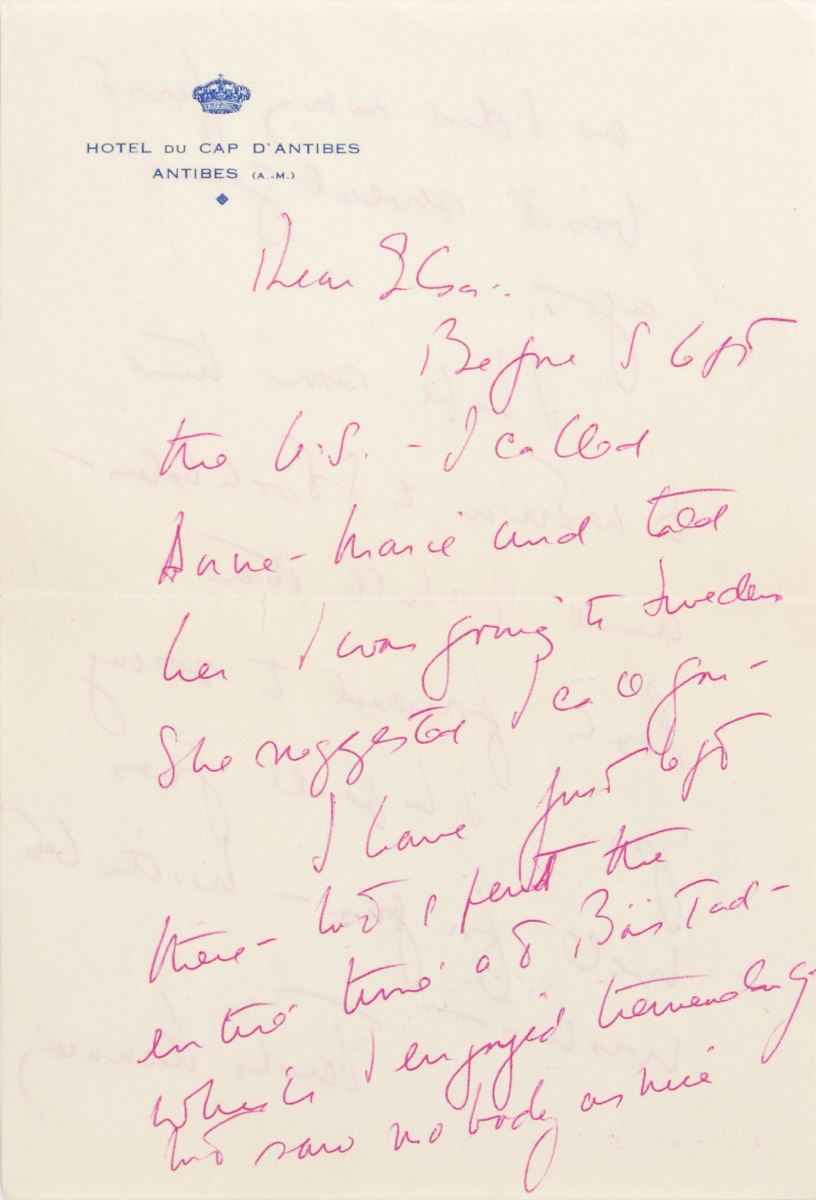 HOTEL DU CAP D'ANTIBES
ANTIBES (A.-M.)
Dear Elsa -
Before I left
the U.S. - I called
Anne-Marie and told
her I was going to Sweden
She suggested I call you -
I have just left
there - but I spent the
entire time at Båstad -
which I enjoyed tremendously
but saw nobody as nice